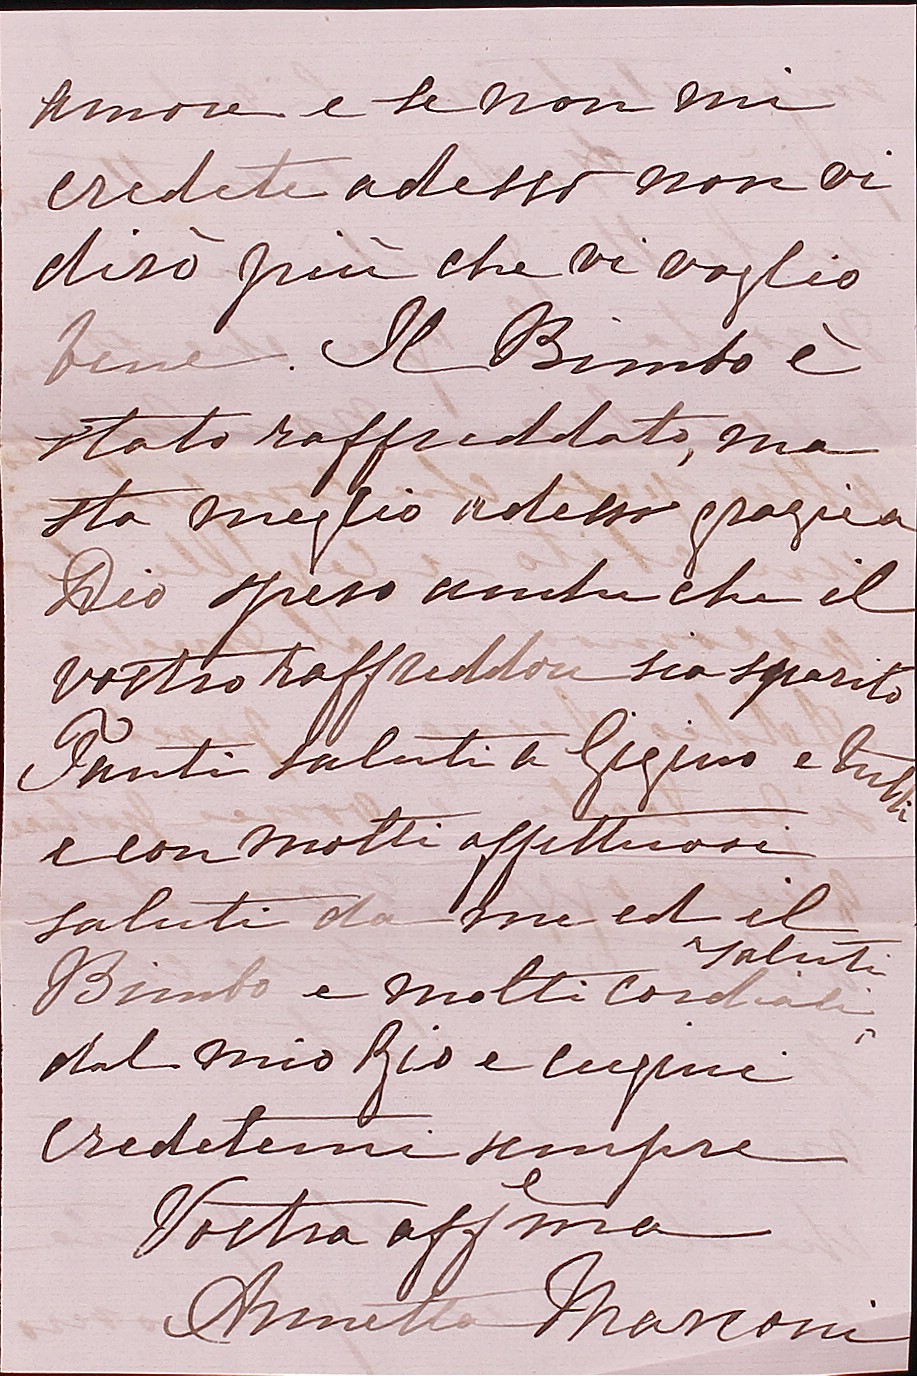 amore e se non mi
credete adesso non vi
dirò più che vi voglio
bene. Il Bimbo è
stato raffreddato, ma
sta meglio adesso grazie a
Dio spero anche che il
vostro raffreddore sia sparito
Tanti saluti a Gigino e tutti
e con molti affettuosi
saluti da me ed il
saluti
Bimbo e molti cordiali
dal mio Zio e cugini
credetemi sempre
Vostra affema
Annetta Marconi